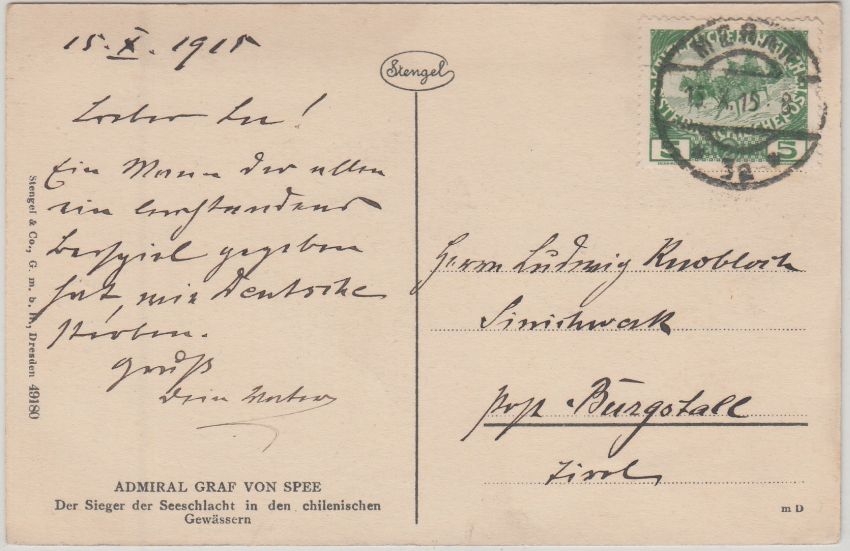 15. X. 1915
Stengel
MERAN
15. X. 15. 8
3a
5 5
Lieber
Ein Mann der allen
ein leuchtendes
Beispiel gegeben
hat, wie Deutsche
sterben.
Gruß
Dein Vater
Stengel & Co., G. m. b. H., Dresden 49180
ADMIRAL GRAF VON SPEE
Der Sieger der Seeschlacht in den chilenischen
Gewässern
Herrn Ludwig Knobloch
Sinichwerk
Post Burgstall
Tirol
m D